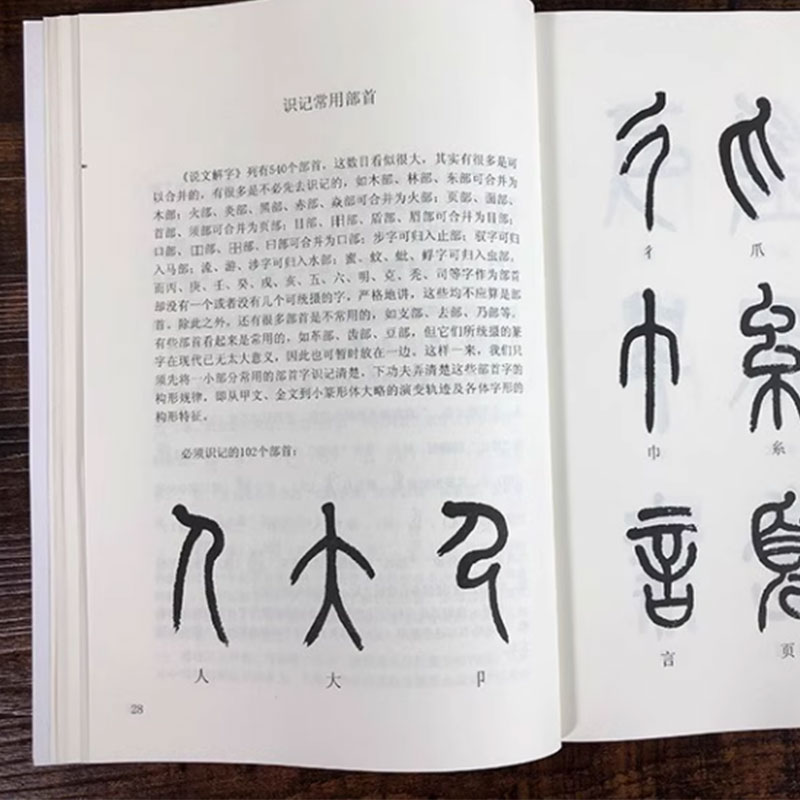 识记常用部首
《说文解字》列有540个部首，这数目看似很大，其实有很多是可
以合并的，有很多是不必先去识记的，如木部、林部、东部可合并为
木部；火部、炎部、黑部、赤部、焱部可合并为火部；页部、面部、
首部、须部可合并为页部；目部、䀠部、盾部、眉部可合并为目部；
口部、吅部、㗊部、曰部可合并为口部；步字可归入止部；驭字可归
入马部；流、游、涉字可归入水部；蜜、蚊、蚍、蜉字可归入虫部。
而丙、庚、壬、癸、戌、亥、五、六、明、克、秃、司等字作为部首
却没有一个或者没有几个可统摄的字，严格地讲，这些均不应算是部
首。除此之外，还有很多部首是不常用的，如支部、去部、乃部等。
有些部首看起来是常用的，如革部、齿部、豆部，但它们所统摄的篆
字在现代已无太大意义，因此也可暂时放在一边。这样一来，我们只
须先将一小部分常用的部首字识记清楚，下功夫弄清楚这些部首字的
构形规律，即从甲文、金文到小篆形体大略的演变轨迹及各体字形的
构形特征。
必须识记的102个部首：
人 大 卩
人 大 卩
28
彳 爪
彳 爪
巾 糸
巾 糸
言 页
言 页